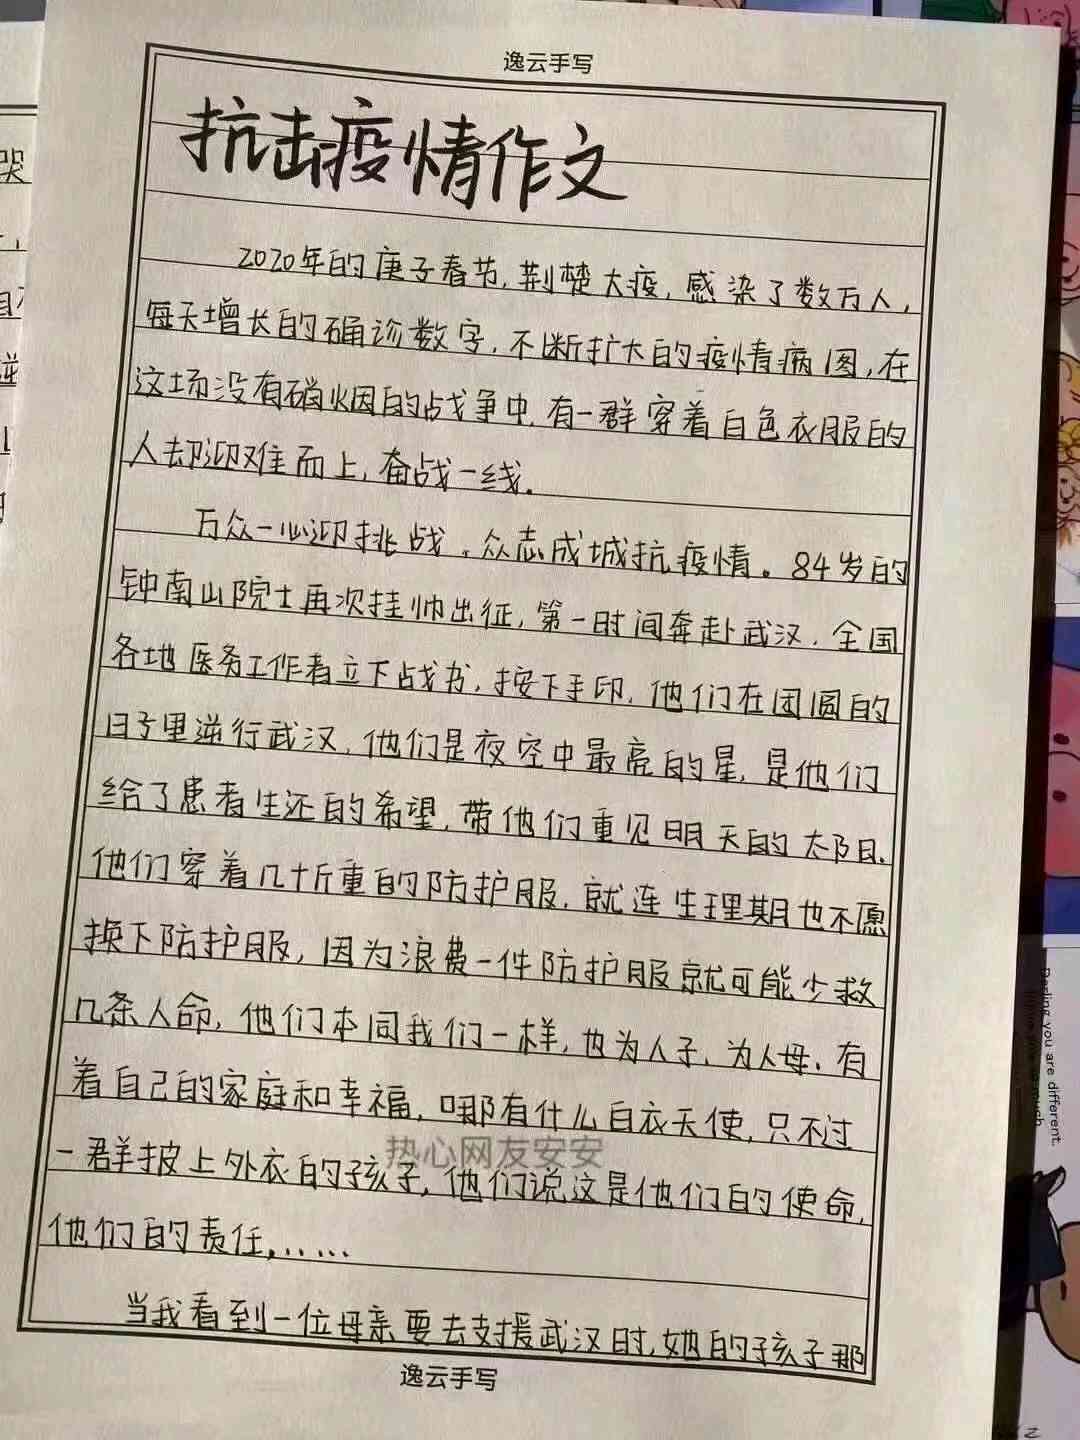 逸云手写
抗击疫情作文
2020年的庚子春节,荆楚大疫,感染了数万人,
每天增长的确诊数字,不断扩大的疫情病图,在
这场没有硝烟的战争中,有一群穿着白色衣服的
人却迎难而上,奋战一线。
万众一心迎挑战,众志成城抗疫情。84岁的
钟南山院士再次挂帅出征,第一时间奔赴武汉,全国
各地医务工作者立下战书,按下手印,他们在团圆的
日子里逆行武汉,他们是夜空中最亮的星,是他们
给了患者生还的希望,带他们重见明天的太阳.
他们穿着几十斤重的防护服,就连生理期也不愿
换下防护服,因为浪费一件防护服就可能少救
几条人命,他们本同我们一样,也为人子、为人母、有
着自己的家庭和幸福,哪有什么白衣天使,只不过
热心网友安安
一群披上外衣的孩子,他们说这是他们的使命,
他们的责任……
当我看到一位母亲要去支援武汉时,她的孩子那
逸云手写
Darling you are different.